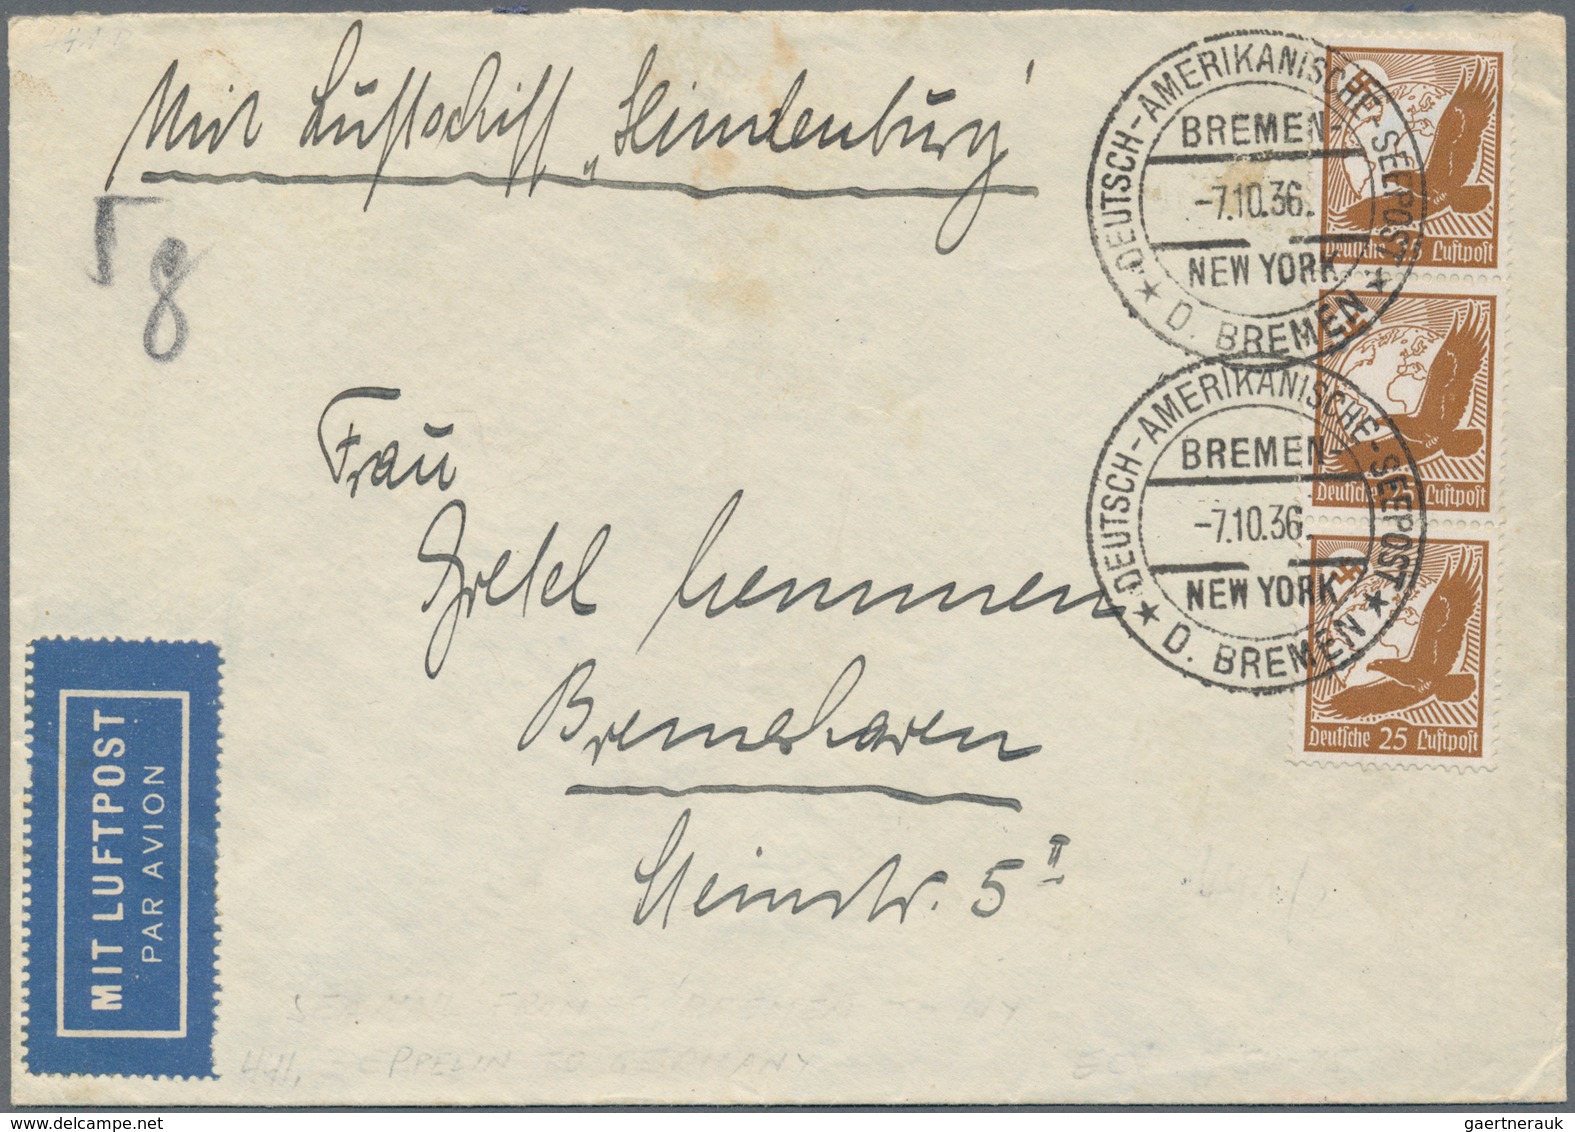 Mit Luftschiff „Hindenburg"
5 g
DEUTSCH-AMERIKANISCHE-SEEPOST
BREMEN-
-7.10.36.
NEW YORK
★ D. BREMEN ★
Deutsche 25 Luftpost
DEUTSCH-AMERIKANISCHE-SEEPOST
BREMEN-
-7.10.36.
NEW YORK
★ D. BREMEN ★
Deutsche 25 Luftpost
Deutsche 25 Luftpost
Frau
Gretel Hemmen
Bremerhaven
Steinstr. 5 II
MIT LUFTPOST
PAR AVION
BREMEN NY
441. ZEPPELIN TO GERMANY
gaertnerauk @ delcampe.net